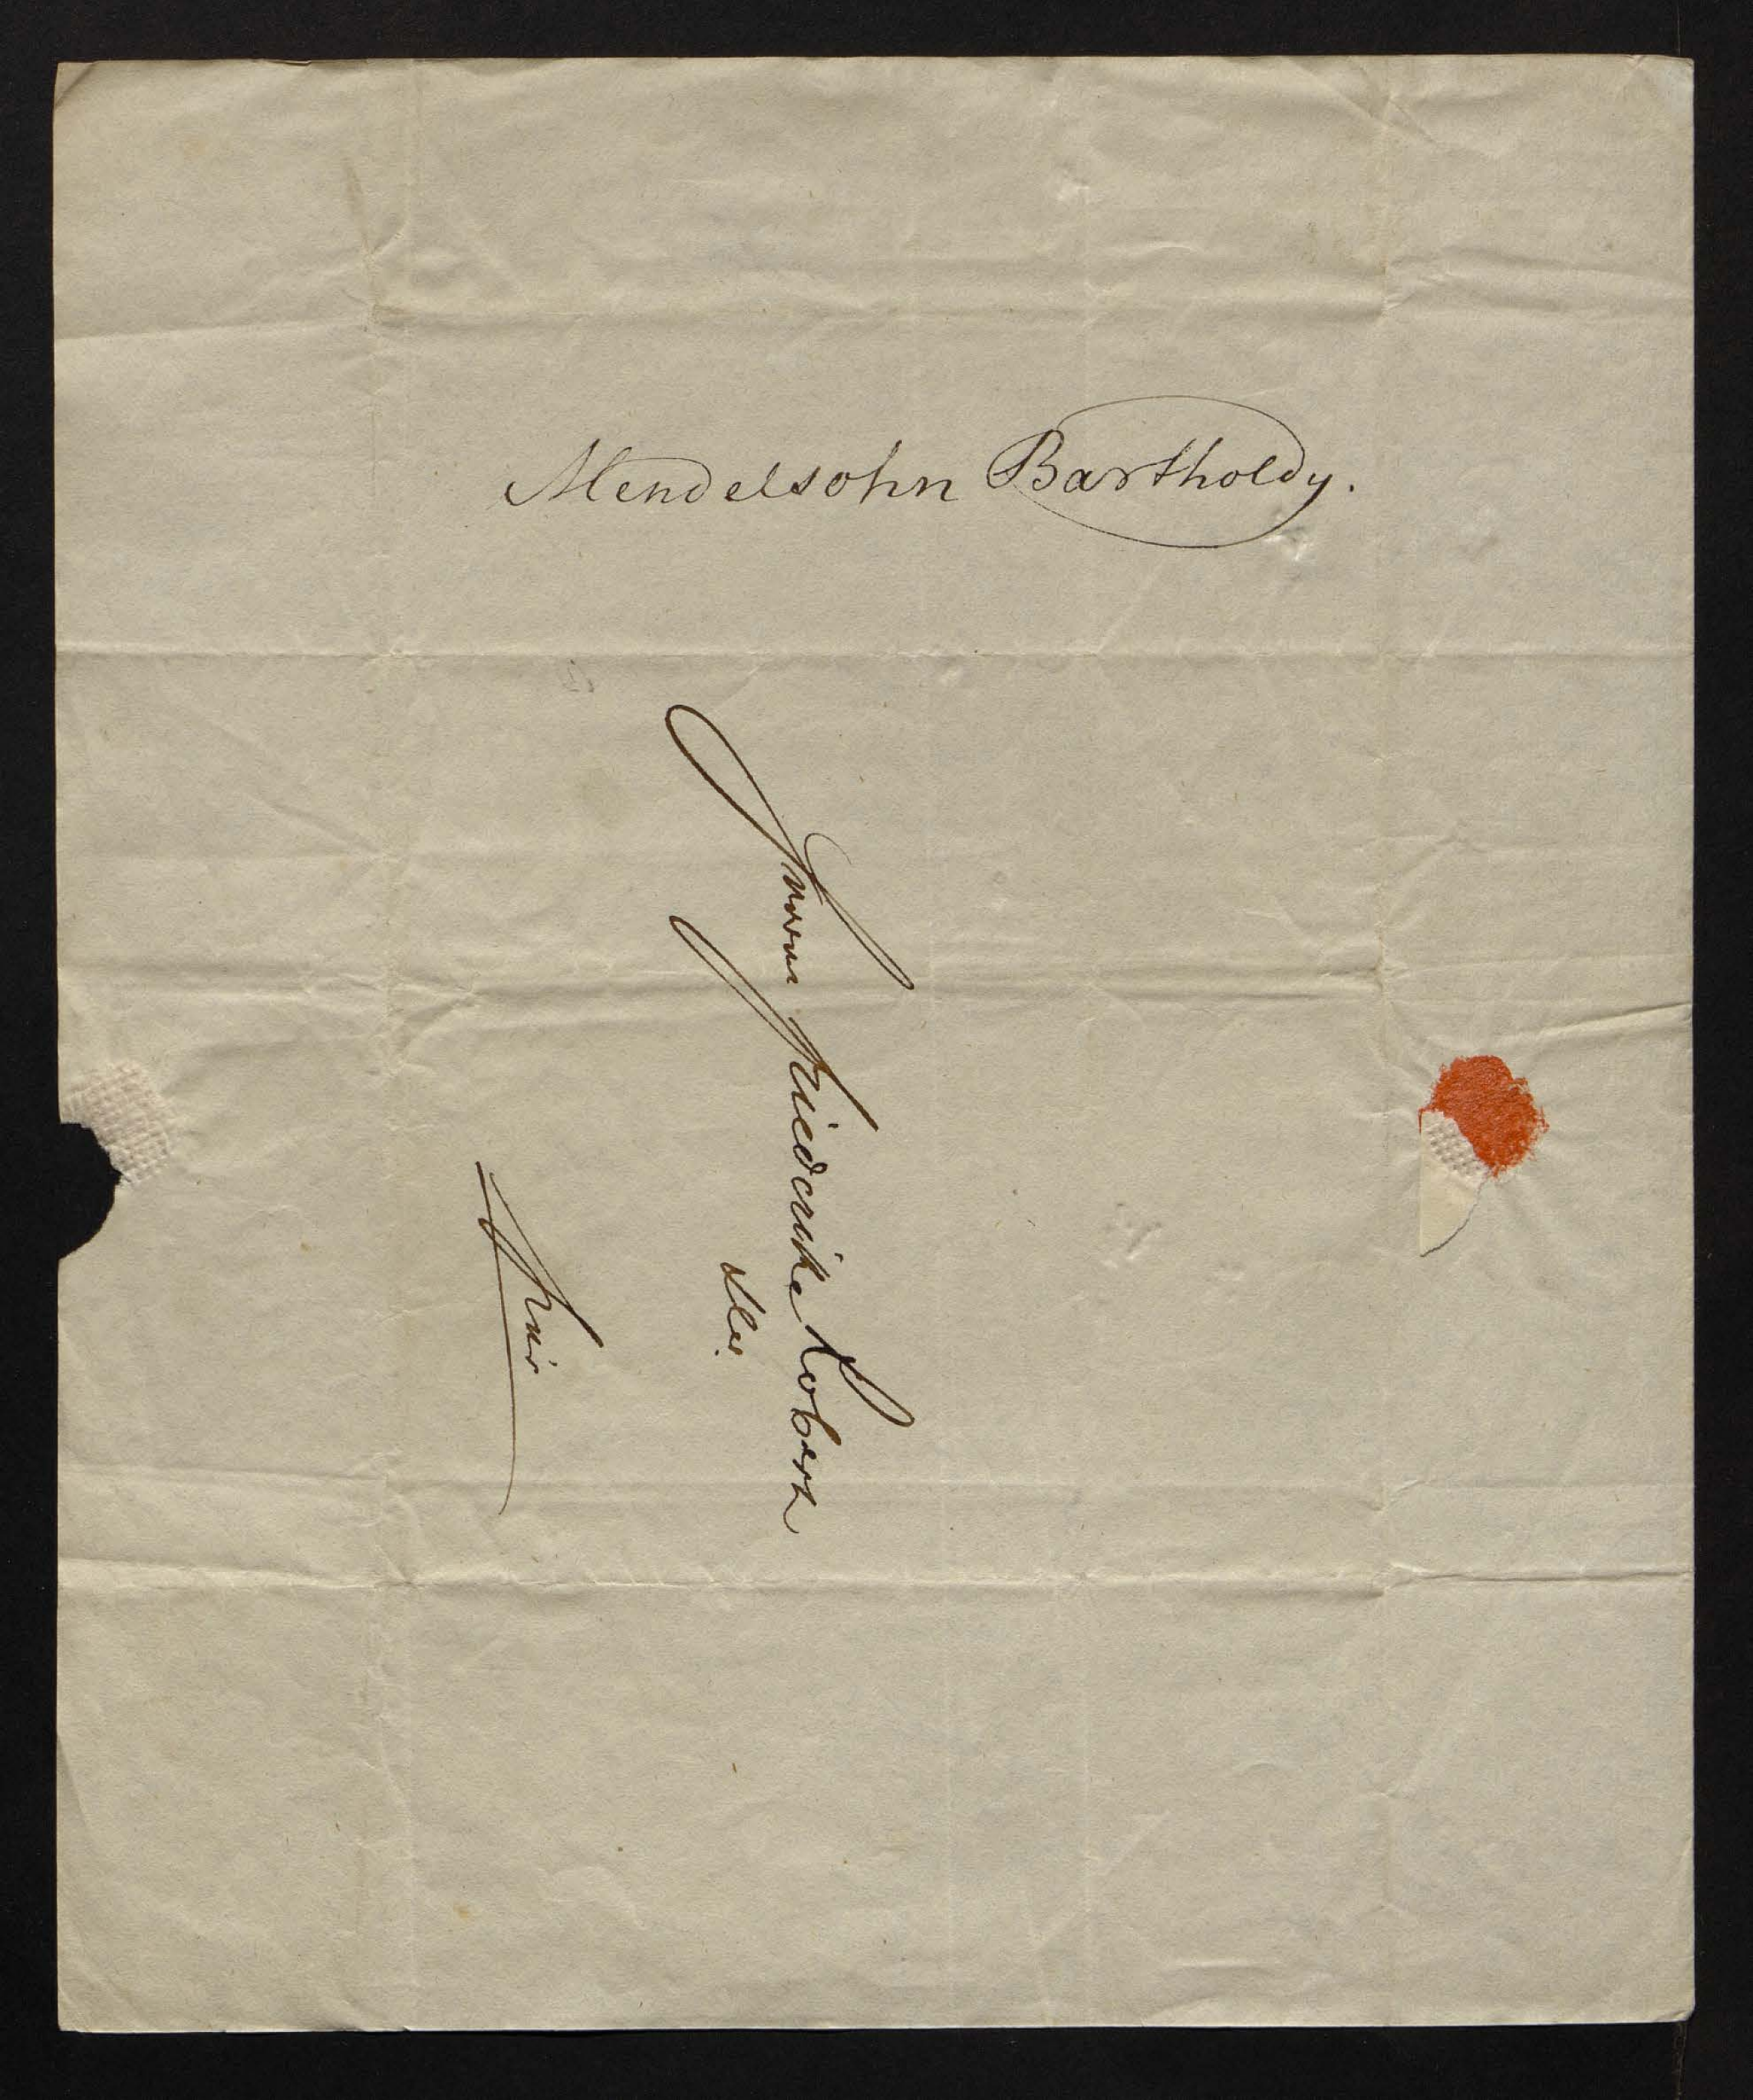 Mendelsohn Bartholdy.
Frau Friederike Robert
hier